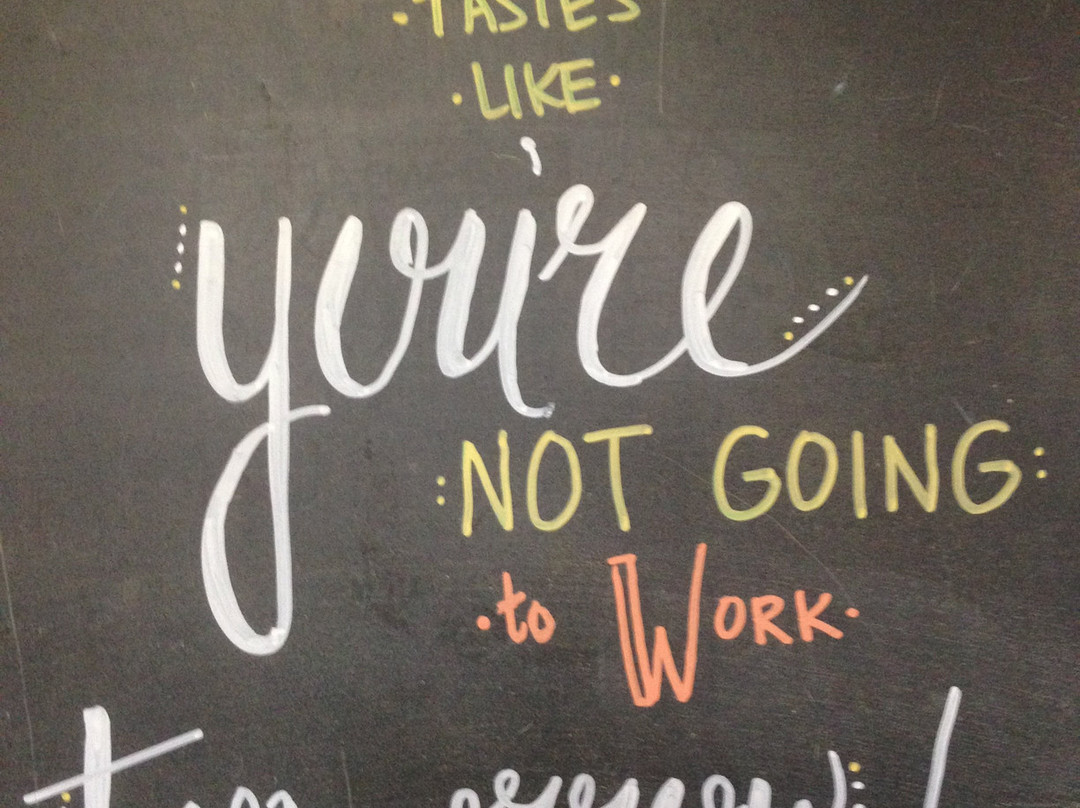 TASTES
LIKE
you're
NOT GOING
to WORK
tomorrow!